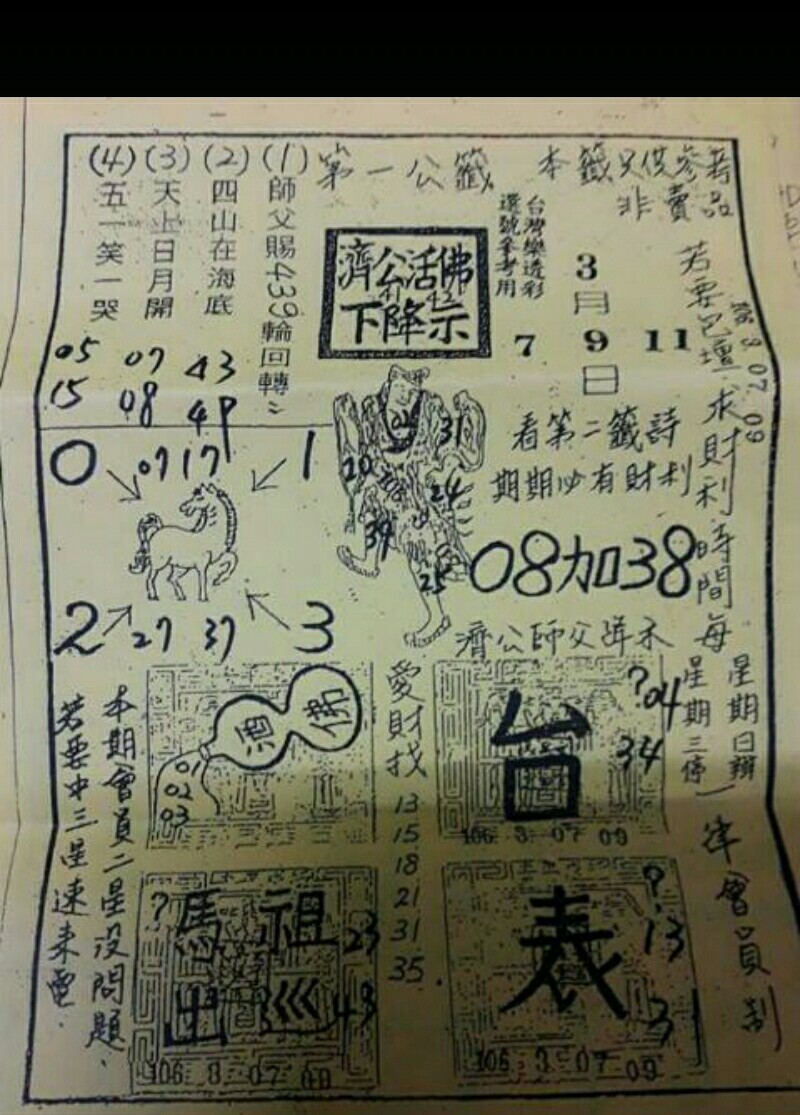 本籤只供參考
非賣品
第一公籤
(1)師父賜439輪回轉
(2)四山在海底
(3)天上日月開
(4)五一笑一哭
台灣樂透彩
選號參考用
濟公活佛
下降示
41 42
3
月
7 9 11
日
若要包壇求財利時間每
星期日辦
星期三停
一律會員制
106 3 07 09
05 07 43
15 08 49
0 07 17 1
2 27 37 3
31
20
24
39
25
看第二籤詩
期期必有財利
08加38
濟公師父降示
愛財找
13
15
18
21
31
35.
佛
酒
01
02
03
台
?04
34
106 3 07 09
本期會員二星沒問題.
若要中三星速來電.
?
馬祖
出巡
23
43
106 3 07 09
表
?
13
31
106 3 07 09